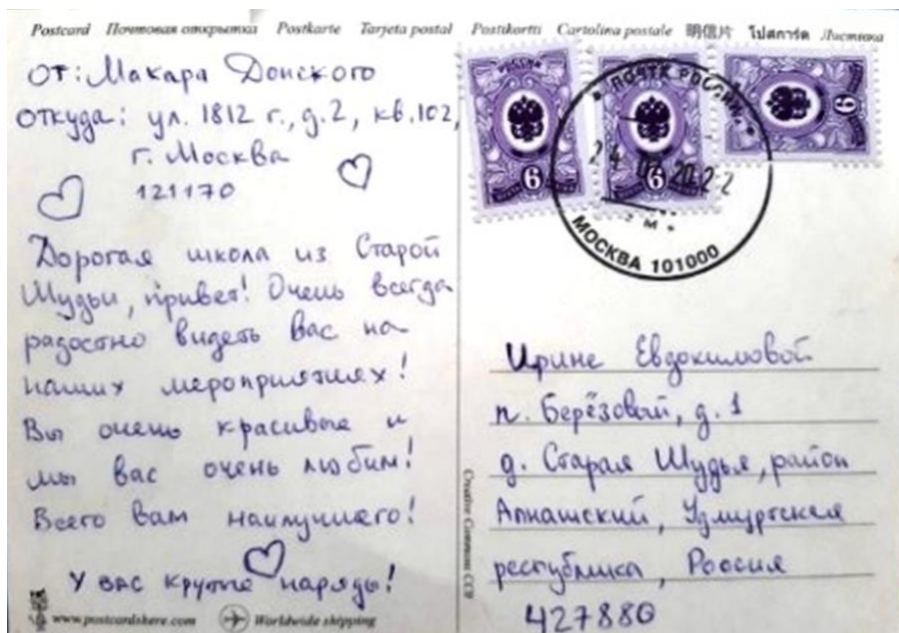 Postcard Почтовая открытка Postkarte Tarjeta postal Postikortti Cartolina postale 明信片 โปสการ์ด Листівка
От: Макара Донского
откуда: ул. 1812 г., д.2, кв.102,
г. Москва
121170
Дорогая школа из Старой
Шудьи, привет! Очень всегда
радостно видеть вас на
наших мероприятиях!
Вы очень красивые и
мы вас очень любим!
Всего вам наилучшего!
У вас крутые наряды!
www.postcardshere.com Worldwide shipping
Creative Commons CC0
РОССИЯ
6
6
6
ПОЧТА РОССИИ
2022
МОСКВА 101000
Ирине Евдокимовой
п. Берёзовый, д. 1
д. Старая Шудья, район
Алнашский, Удмуртская
республика, Россия
427880